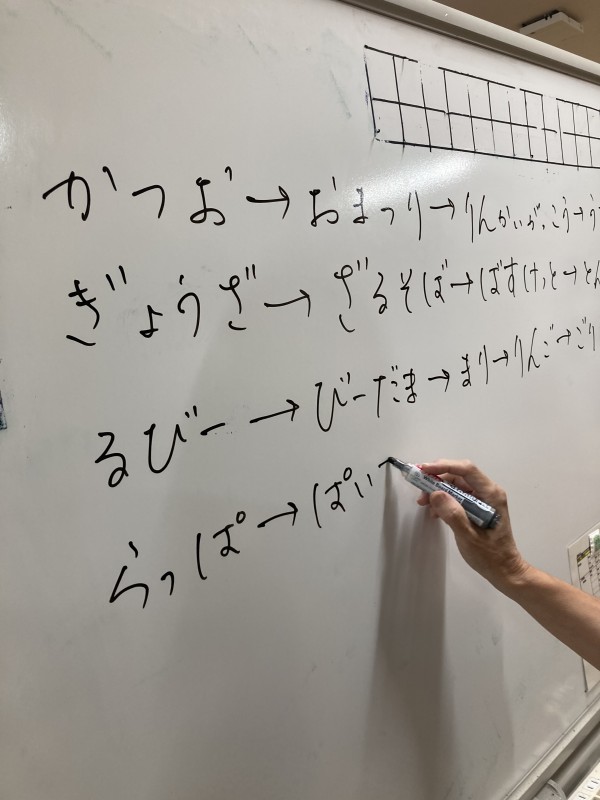 かつお→おまつり→りんかいがっこう→う
ぎょうざ→ざるそば→ばすけっと→とん
るびー→びーだま→まり→りんご→ごり
らっぱ→ぱい